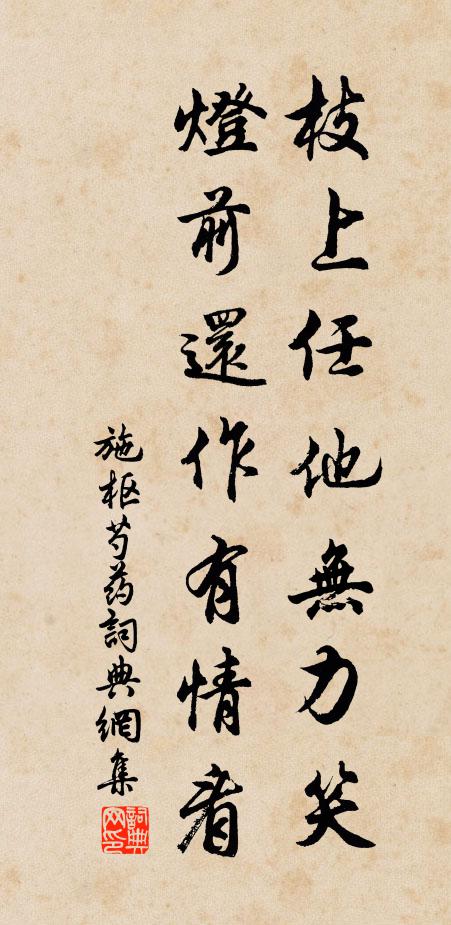 枝上任他無力笑
燈前還作有情看
施枢芍药詞典網集
詞典网印